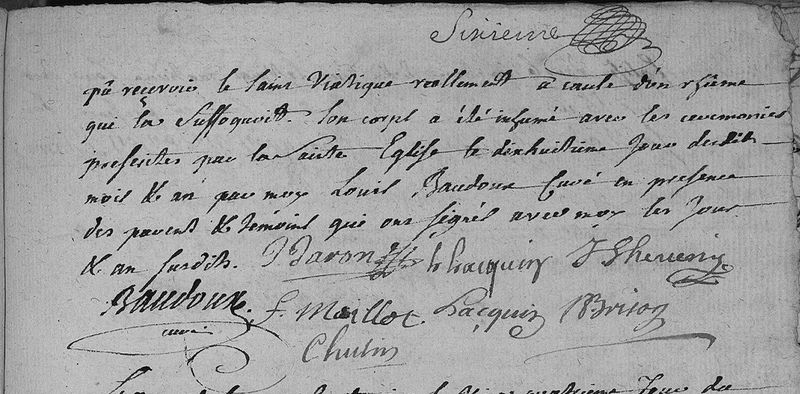 Sixieme
pû recevoir le saint Viatique reellement a cause d'un rhume
qui la suffoquoit. Son corps a été inhumé avec les ceremonies
prescrites par la Sainte Eglise le dixhuitieme jour desdits
mois & an par moy Louis Baudoux Curé en presence
des parent & temoins qui ont signés avec moy les jour
& an susdits. Baron Pacquin
Baudoux. f. Maillot Pacquin Brisoy
curé
Chulin